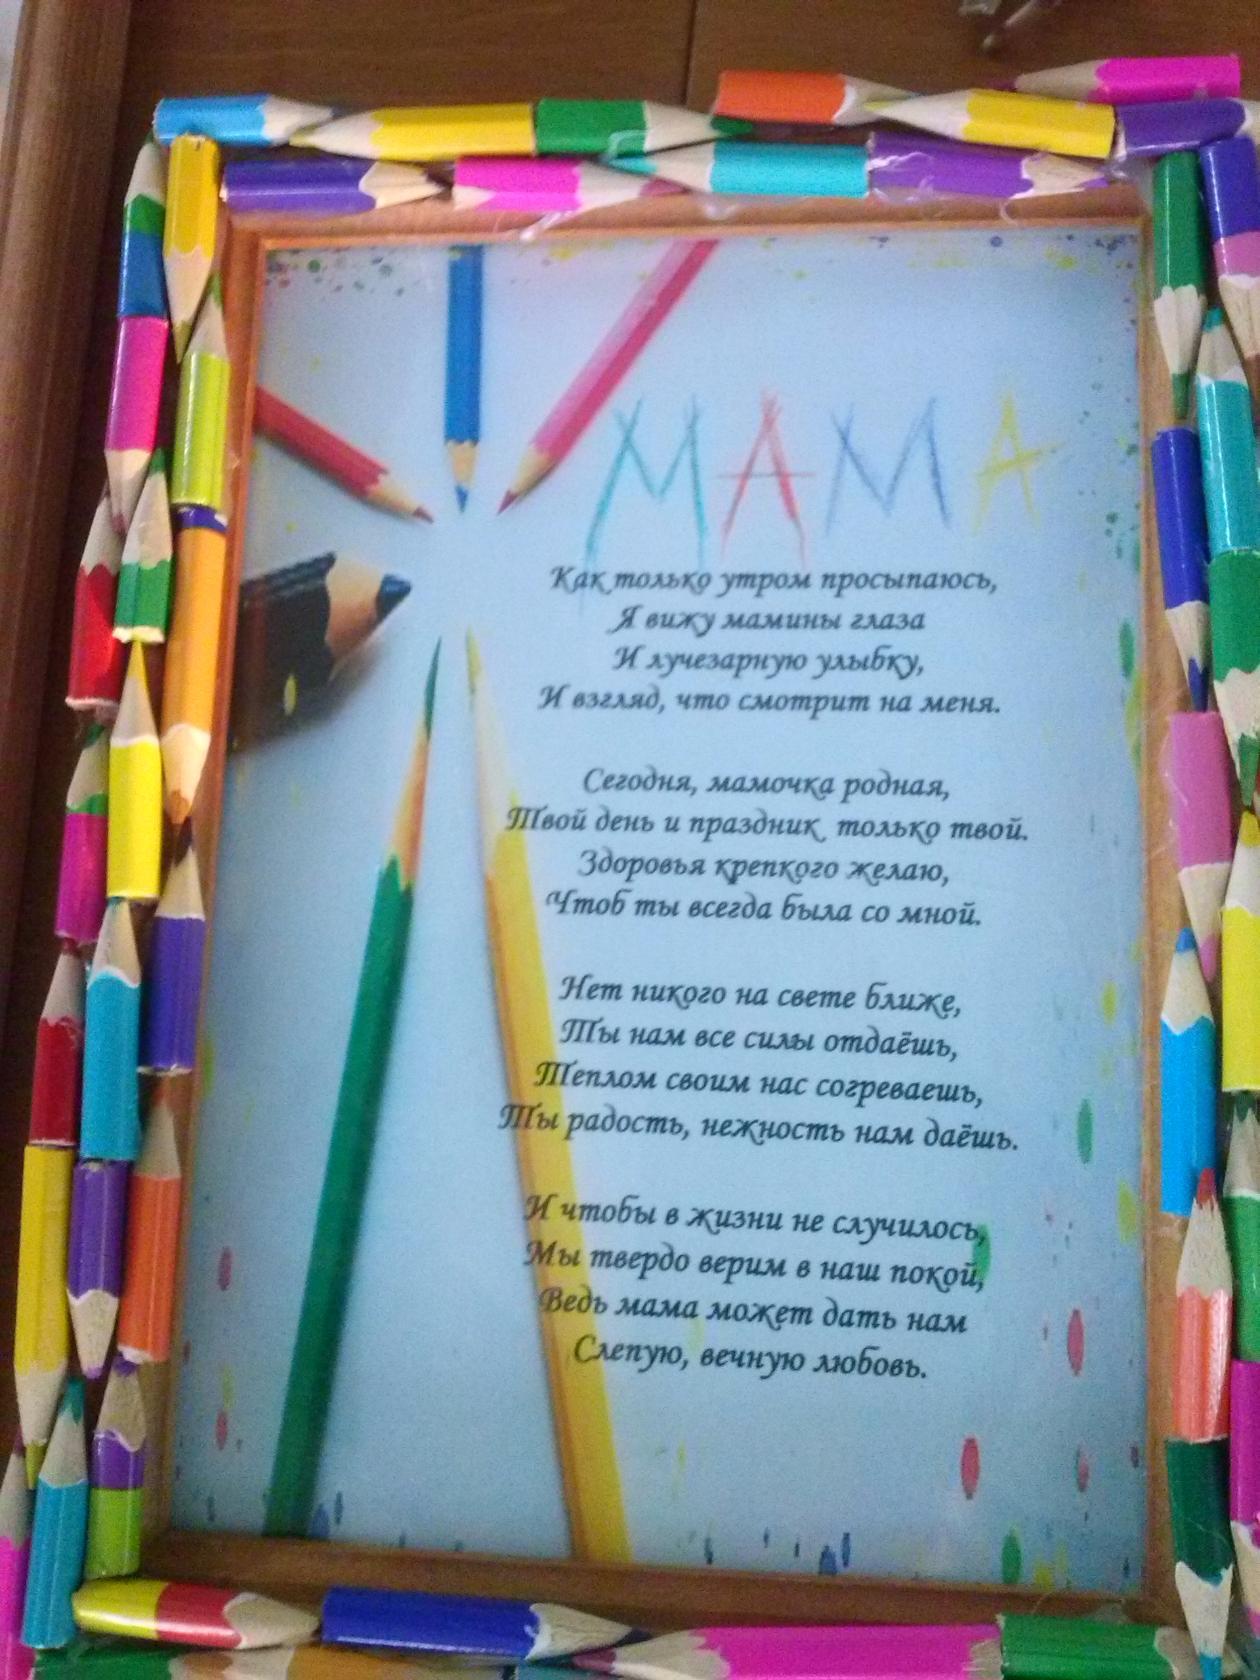 МАМА
Как только утром просыпаюсь,
Я вижу мамины глаза
И лучезарную улыбку,
И взгляд, что смотрит на меня.
Сегодня, мамочка родная,
Твой день и праздник только твой.
Здоровья крепкого желаю,
Чтоб ты всегда была со мной.
Нет никого на свете ближе,
Ты нам все силы отдаёшь,
Теплом своим нас согреваешь,
Ты радость, нежность нам даёшь.
И чтобы в жизни не случилось,
Мы твердо верим в наш покой,
Ведь мама может дать нам
Слепую, вечную любовь.